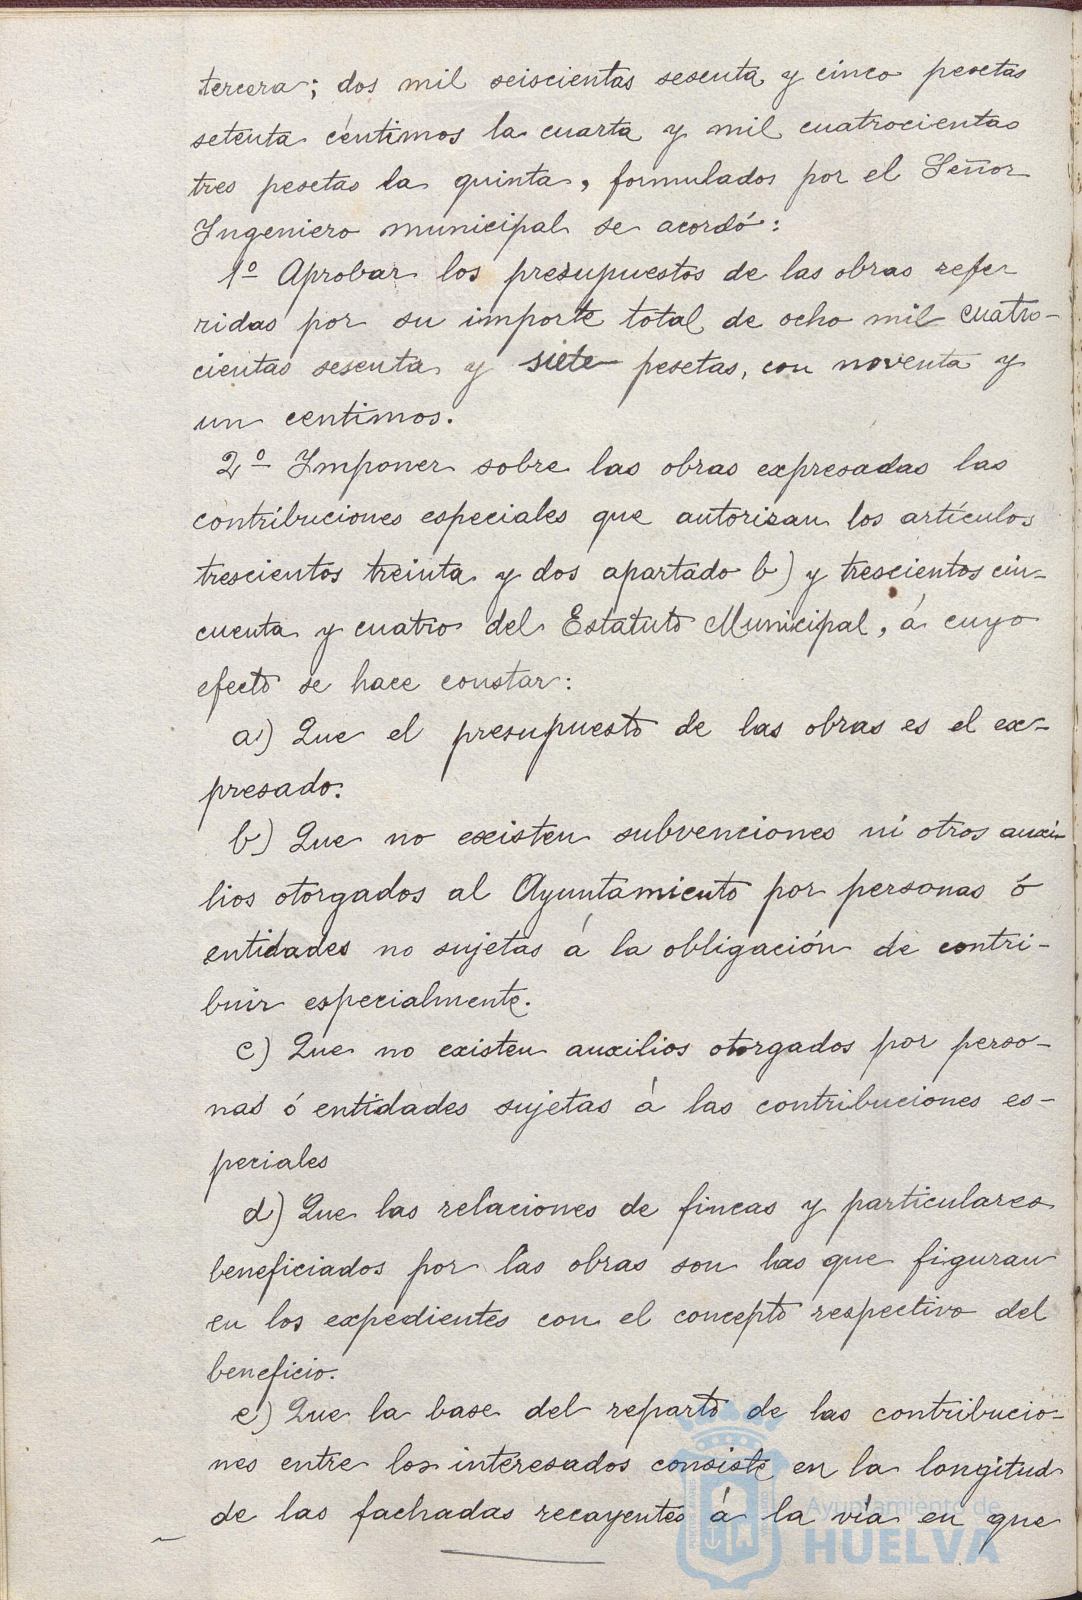 tercera; dos mil seiscientas sesenta y cinco pesetas
setenta céntimos la cuarta y mil cuatrocientas
tres pesetas la quinta, formulados por el Señor
Ingeniero municipal se acordó:
1º Aprobar los presupuestos de las obras refe-
ridas por su importe total de ocho mil cuatro-
cientas sesenta y siete pesetas, con noventa y
un centimos.
2º Imponer sobre las obras expresadas las
contribuciones especiales que autorizan los artículos
trescientos treinta y dos apartado b) y trescientos cin-
cuenta y cuatro del Estatuto Municipal, á cuyo
efecto se hace constar:
a) Que el presupuesto de las obras es el ex-
presado.
b) Que no existen subvenciones ni otros auxi-
lios otorgados al Ayuntamiento por personas ó
entidades no sujetas á la obligación de contri-
buir especialmente.
c) Que no existen auxilios otorgados por perso-
nas ó entidades sujetas á las contribuciones es-
peciales
d) Que las relaciones de fincas y particulares
beneficiados por las obras son las que figuran
en los expedientes con el concepto respectivo del
beneficio.
e) Que la base del reparto de las contribucio-
nes entre los interesados consiste en la longitud
de las fachadas recayentes á la vía en que
Ayuntamiento de
HUELVA